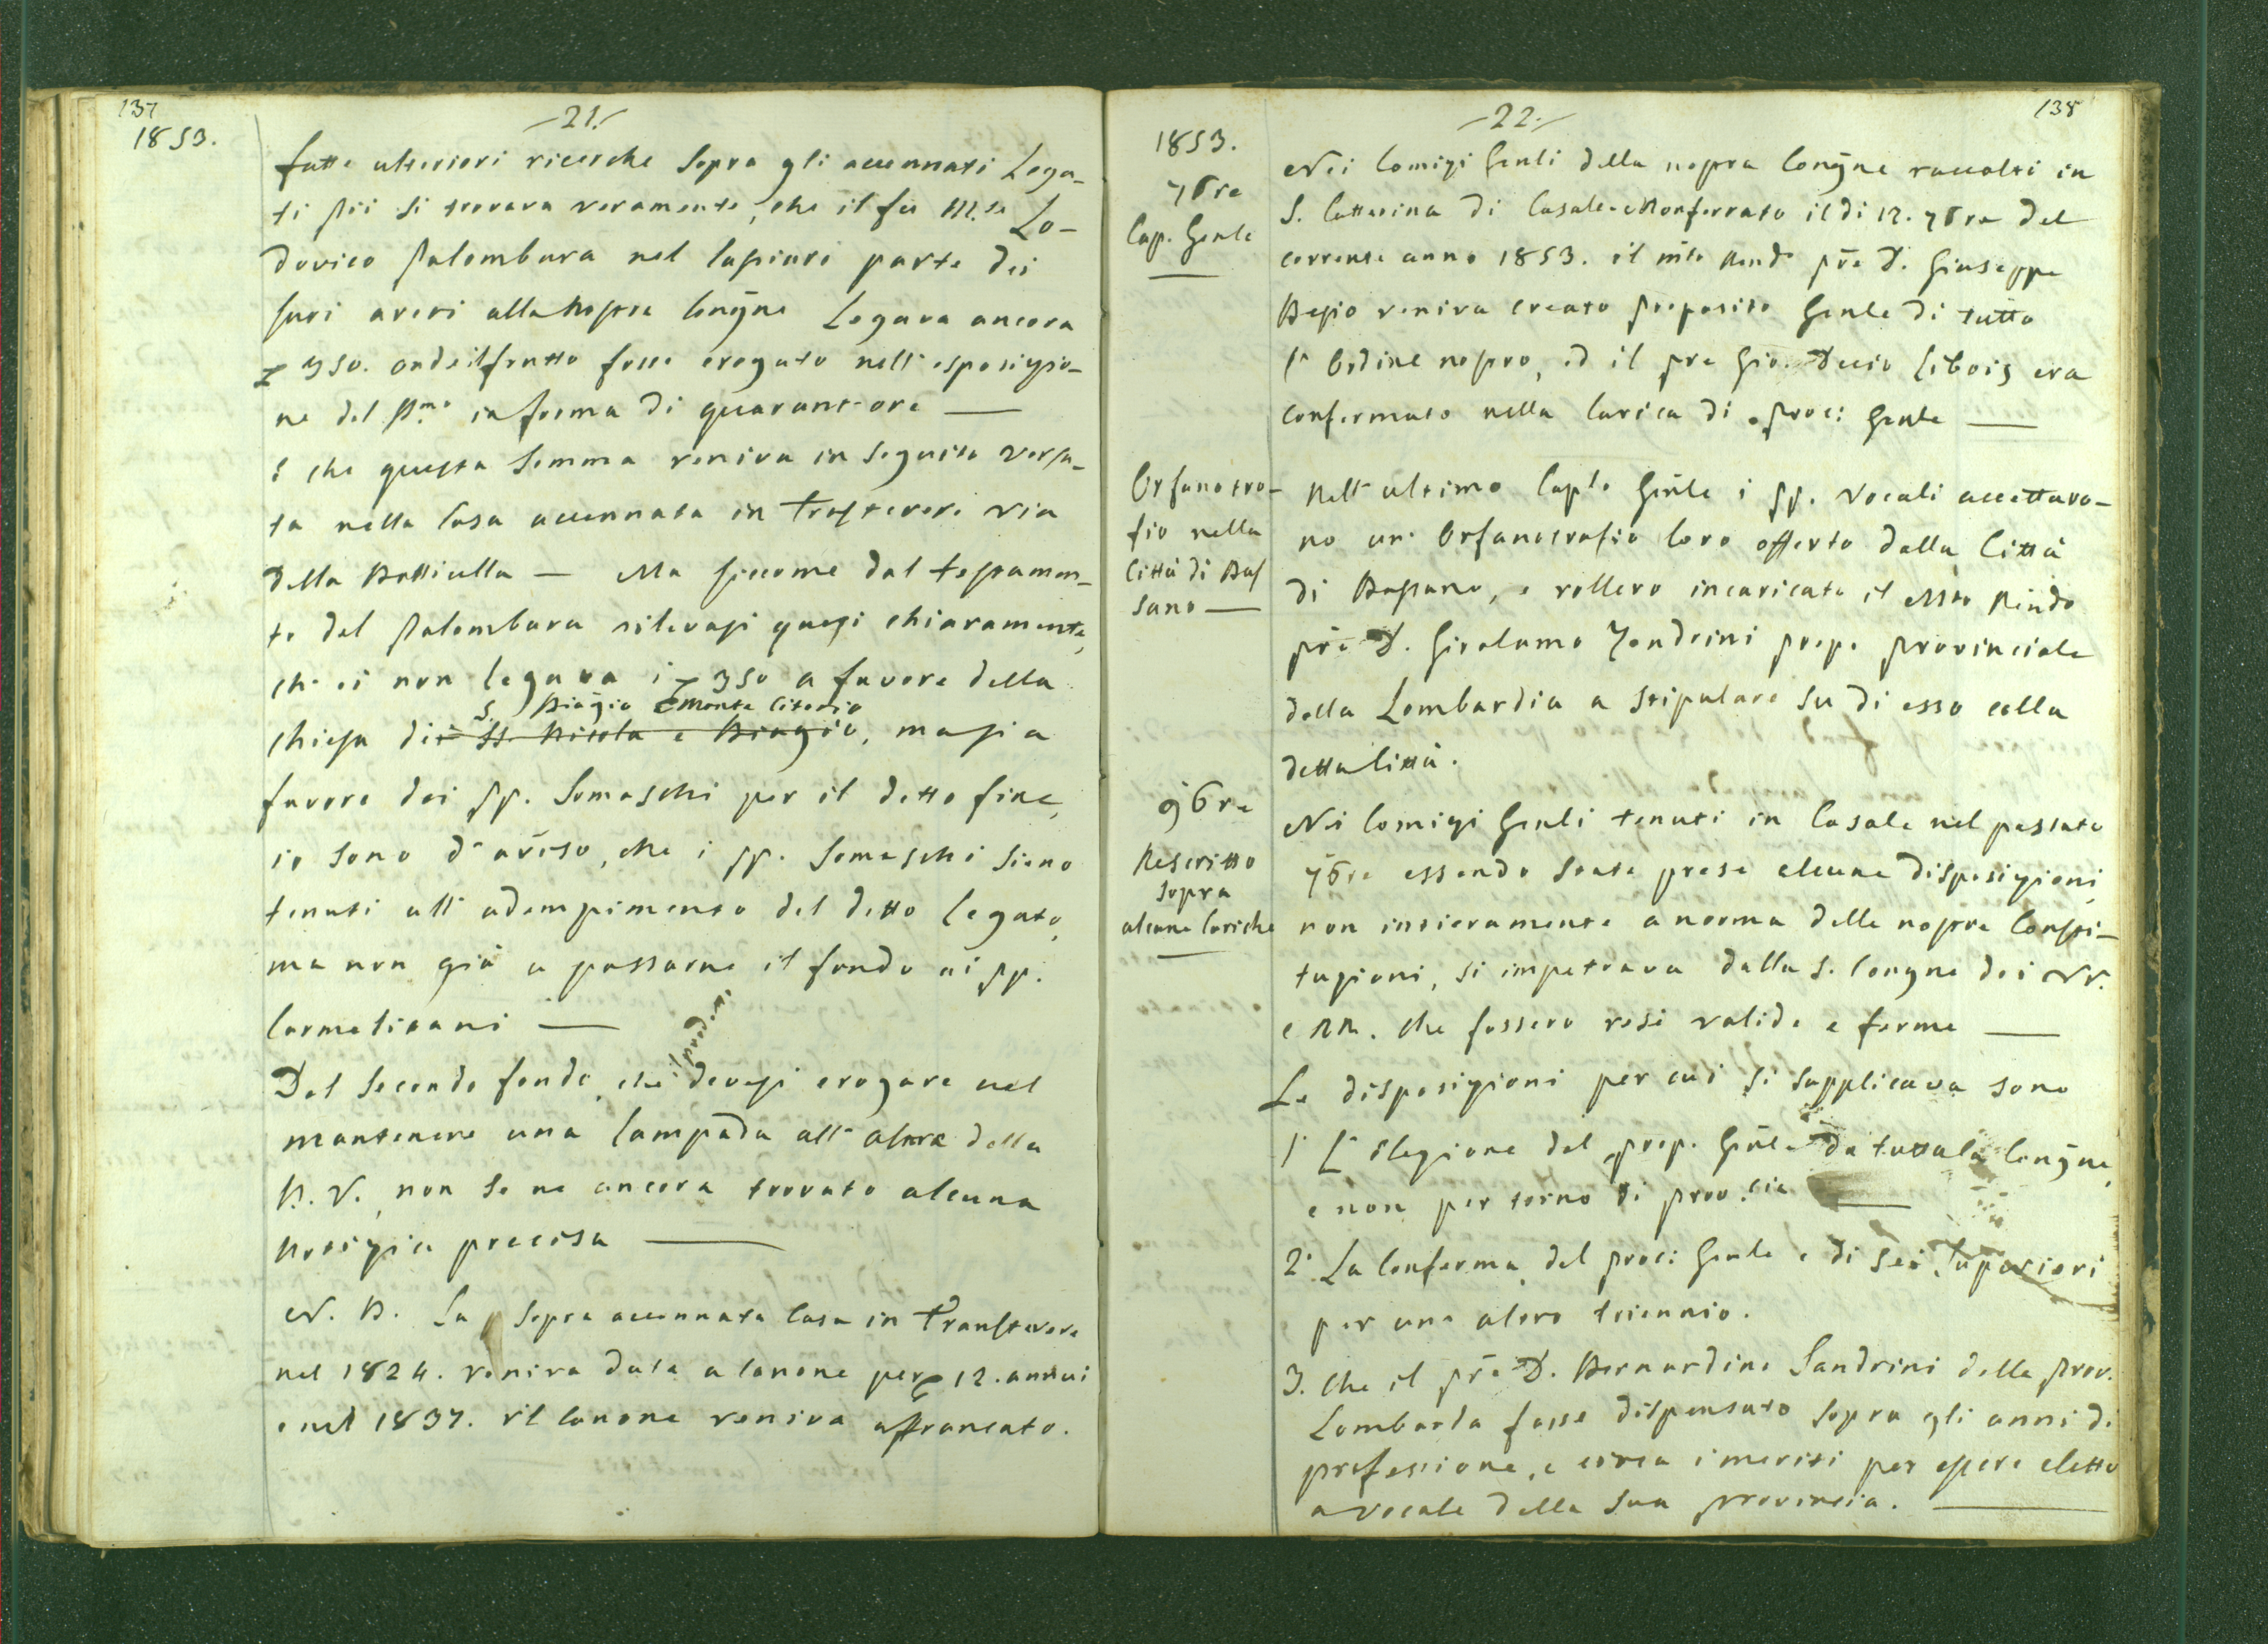 137
-21.-
1853.
fatte ulteriori ricerche sopra gli accennati Lega-
ti pii si trovava veramente, che il fu M.se Lo-
dovico Palombara nel lasciare parte dei
suoi averi alla nostra Congne Legava ancora
350. onde il frutto fosse erogato nell' esposizio-
ne del Smo in forma di quarant-ore —
e che questa somma veniva in seguito versa-
ta nella Casa accennata in Trastevere via
della — Ma siccome dal testamen-
to del Palombara rilevasi quasi chiaramente,
che ei non legava i 350 a favore della
S. Biagio Monte Citorio
chiesa di SS. Nicola e Biagio, ma si a
favore dei PP. Somaschi per il detto fine,
io sono d' aviso, che i PP. Somaschi sieno
tenuti all' adempimento del detto Legato,
ma non già a passarne il fondo ai PP.
Carmelitani —
Del secondo fondo, che devesi erogare nel
mantenere una lampada all' altare della
B. V. non se ne ancora trovato alcuna
notizia precisa —
N. B. La sopra accennata Casa in Transtevere
nel 1824. veniva data a Canone per 12. annui
e nel 1837. il Canone veniva affrancato.
138
-22.-
1853.
7bre
Cap. Genle
Nei Comizi Genli della nostra Congne raccolti in
S. Catterina di Casale-Monferrato il di 12. 7bre del
corrente anno 1853. il mto Rendo pre D. Giuseppe
Besio veniva creato Preposito Genle di tutto
l' Ordine nostro, ed il pre Gio. Decio Libois era
confermato nella Carica di Proc: Genle —
Orfanotro-
fio nella
Città di Bas
sano —
Nell' ultimo Caplo Genle i PP. Vocali accettaro-
no un' Orfanotrofio loro offerto dalla Città
di Bassano, e vollero incaricato il Mto Rendo
pre D. Girolamo Zendrini prepo provinciale
della Lombardia a stipulare su di esso colla
detta Città.
9bre
Rescritto
sopra
alcune Cariche
Nei Comizi Genli tenuti in Casale nel passato
7bre essendo state prese alcune disposizioni,
non intieramente a norma delle nostre Costi-
tuzioni, si impetrava dalla S. Congne dei VV.
e RR. che fossero rese valide e ferme —
Le disposizioni per cui si supplicava sono
1° L' Elezione del prep. Genle da tutta la Congne,
e non per torno di prov.cie —
2° La Conferma del proc: Genle e di sei Superiori
per uno altro triennio.
3. Che il pre D. Bernardino Sandrini della prov.
Lombarda fosse dispensato sopra gli anni di
professione, e circa i meriti per essere eletto
a vocale della sua provincia. —